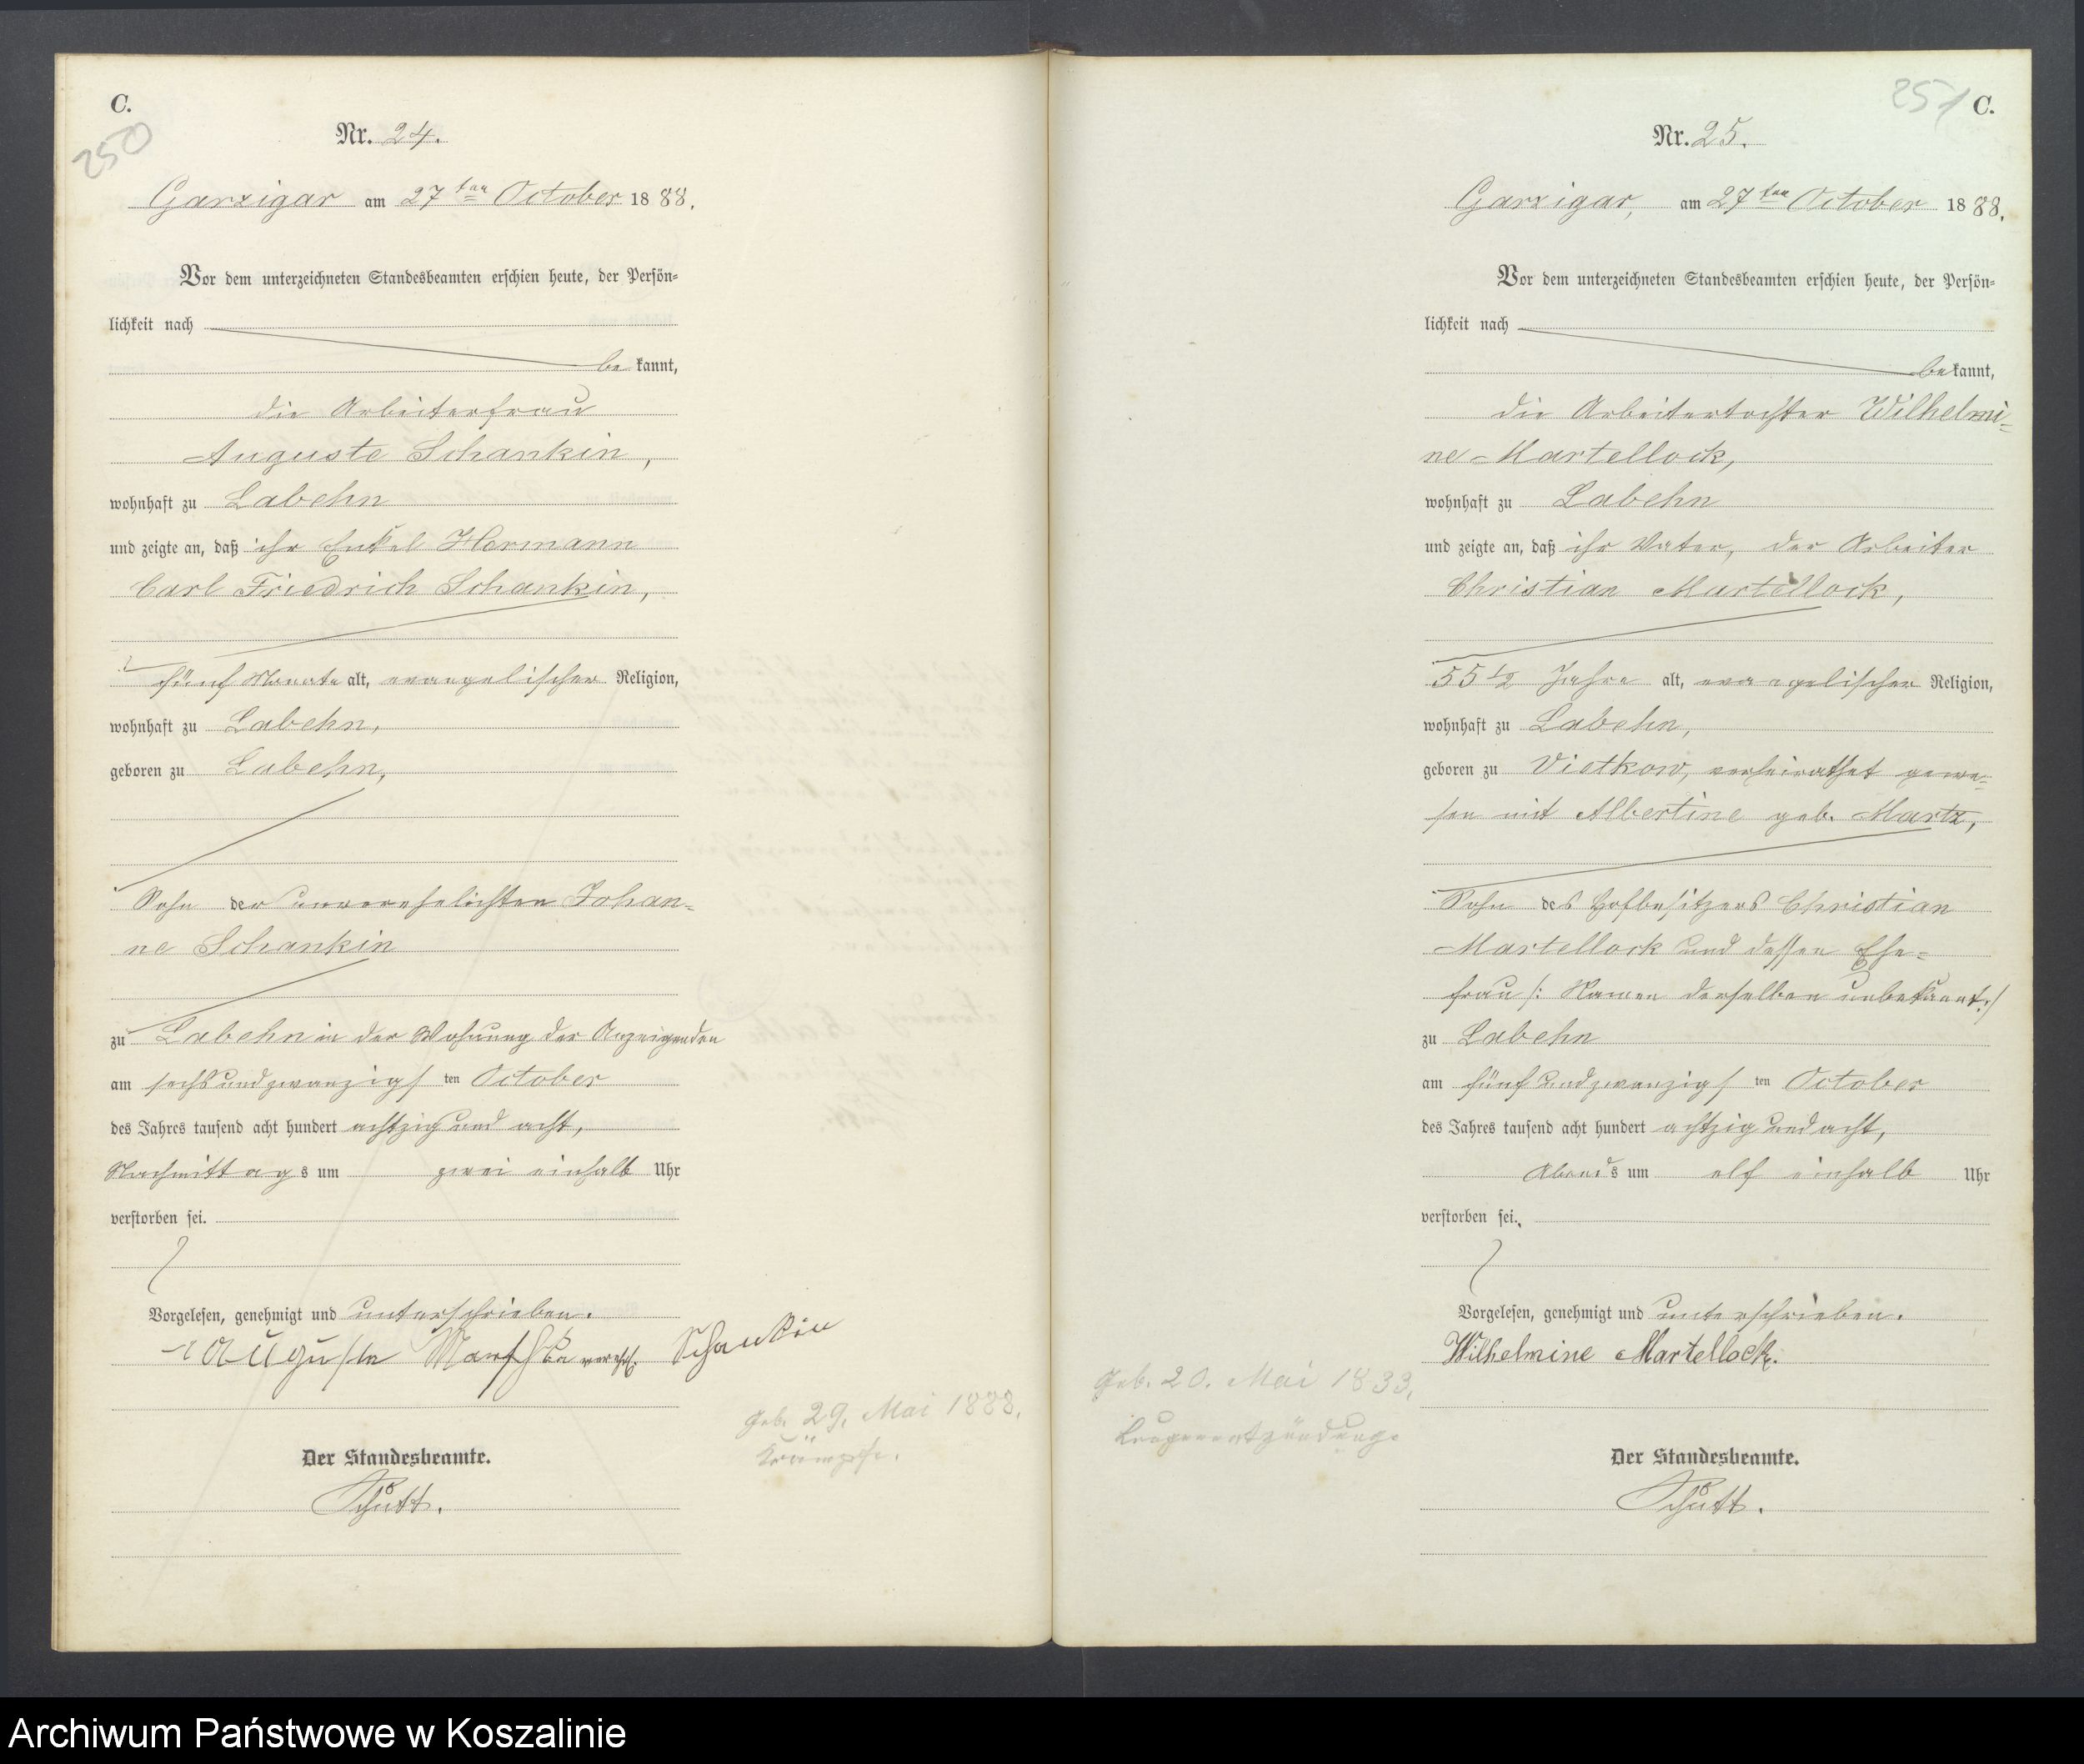 C.
250
Nr. 24.
Garzigar am 27ten October 1888.
Vor dem unterzeichneten Standesbeamten erschien heute, der Persön-
lichkeit nach
bekannt,
die Arbeiterfrau
Auguste Schankin,
wohnhaft zu Labehn
und zeigte an, daß ihr Enkel Hermann
Carl Friedrich Schankin,
fünf Monate alt, evangelischer Religion,
wohnhaft zu Labehn,
geboren zu Labehn,
Sohn der unverehelichten Johan-
ne Schankin
zu Labehn in der Wohnung der Anzeigenden
am sechsundzwanzigsten October
des Jahres tausend acht hundert achtzig und acht,
Nachmittags um zwei einhalb Uhr
verstorben sei.
Vorgelesen, genehmigt und unterschrieben.
Auguste verehl. Schankin
Geb. 29. Mai 1888.
Krämpfe.
Der Standesbeamte.
Schütt.
251 C.
Nr. 25.
Garzigar, am 27ten October 1888.
Vor dem unterzeichneten Standesbeamten erschien heute, der Persön-
lichkeit nach
bekannt,
die Arbeitertochter Wilhelmi-
ne Martellock,
wohnhaft zu Labehn
und zeigte an, daß ihr Vater, der Arbeiter
Christian Martellock,
55 1/2 Jahre alt, evangelischer Religion,
wohnhaft zu Labehn,
geboren zu Vietkow, verheirathet gewe-
sen mit Albertine geb. Martz,
Sohn des Hofbesitzers Christian
Martellock und dessen Ehe-
frau /: Namen derselben unbekannt :/
zu Labehn
am fünfundzwanzigsten October
des Jahres tausend acht hundert achtzig und acht,
Abends um elf einhalb Uhr
verstorben sei.
Vorgelesen, genehmigt und unterschrieben.
Wilhelmine Martellock.
Geb. 20. Mai 1833.
Lungenentzündung.
Der Standesbeamte.
Schütt.
Archiwum Państwowe w Koszalinie